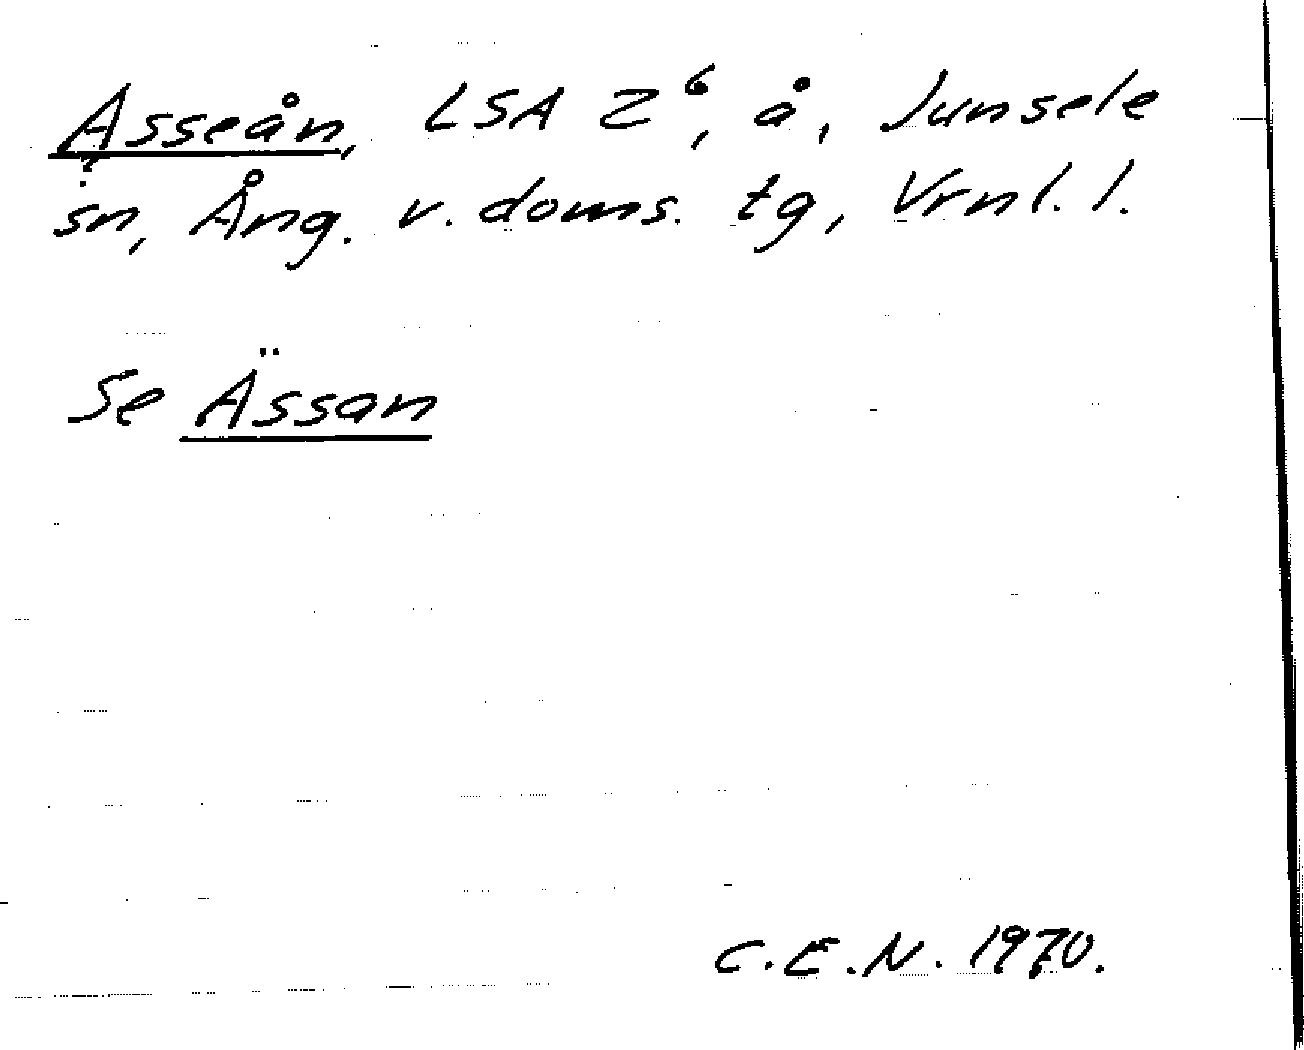 Asseån, LSA Z⁶, å, Junsele
?
sn, Ång. v. doms. tg, Vrnl. l.
Se Ässan
C.E.N. 1970.